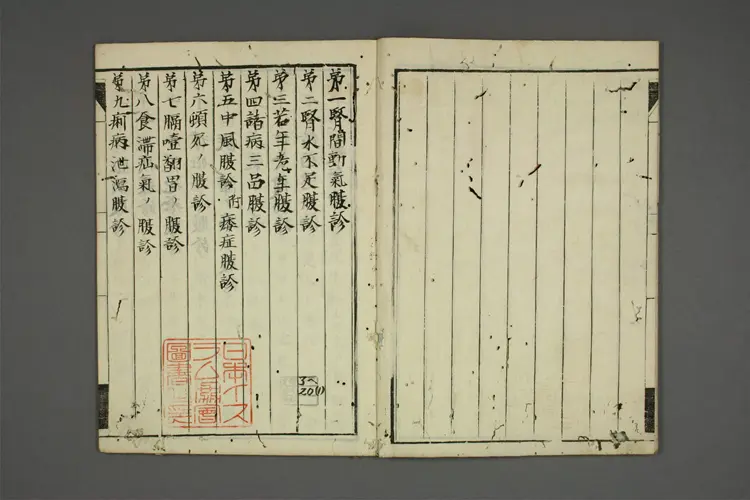 第一腎間動氣腹診
第二腎水不足腹診
第三若年老年腹診
第四諸病三品腹診
第五中風腹診 附 痿症腹診
第六頭死ノ腹診
第七膈噎翻胃ノ腹診
第八食滞疝氣ノ腹診
第九痢病泄瀉腹診
日本イス
ラム教會
圖書之印